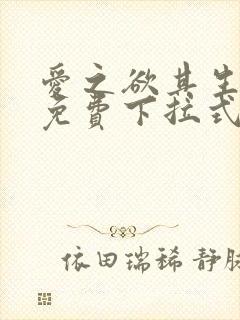 愛之欲其生
免費下拉式
依田瑞稀 静脉